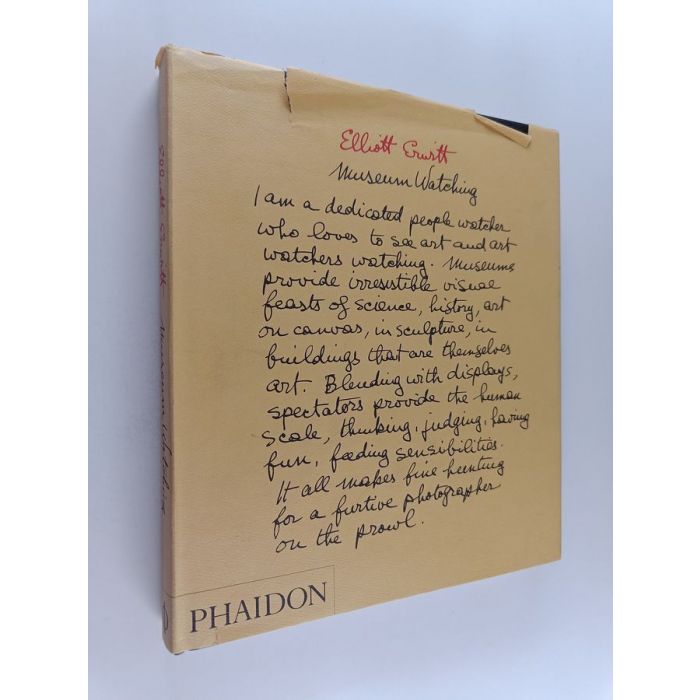 Elliott Erwitt
Museum Watching
I am a dedicated people watcher
who loves to see art and art
watchers watching. Museums
provide irresistible visual
feasts of science, history, art
on canvas, in sculpture, in
buildings that are themselves
art. Blending with displays,
spectators provide the human
scale, thinking, judging, having
fun, feeding sensibilities.
It all makes fine hunting
for a furtive photographer
on the prowl.
PHAIDON
Elliott Erwitt Museum Watching